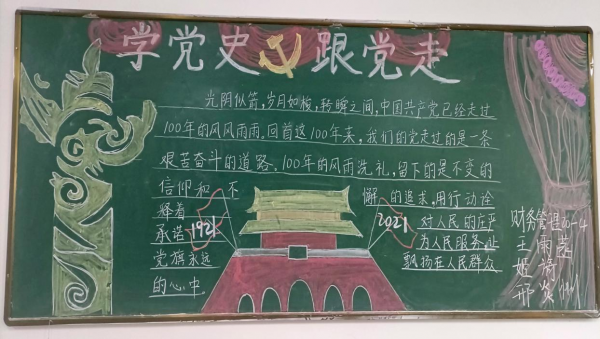 学党史 跟党走
光阴似箭,岁月如梭,转瞬之间,中国共产党已经走过
100年的风风雨雨,回首这100年来,我们的党走过的是一条
艰苦奋斗的道路、100年的风雨洗礼,留下的是不变的
信仰和不懈的追求,用行动诠
释着对人民的庄严
承诺为人民服务,让
党旗永远飘扬在人民群众
的心中.
1921
2021
财务管理
王雨
姬
邢炎